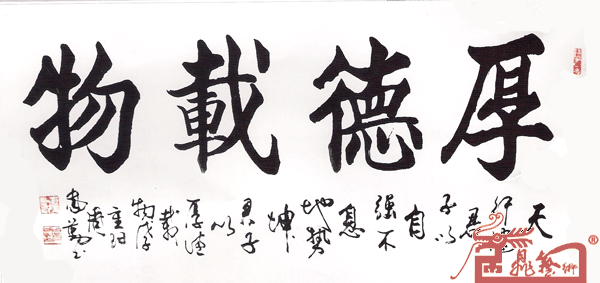 厚德載物
天
行健
君
子以
自
強不
息
地勢
坤
君子
以
厚德
載
物
®